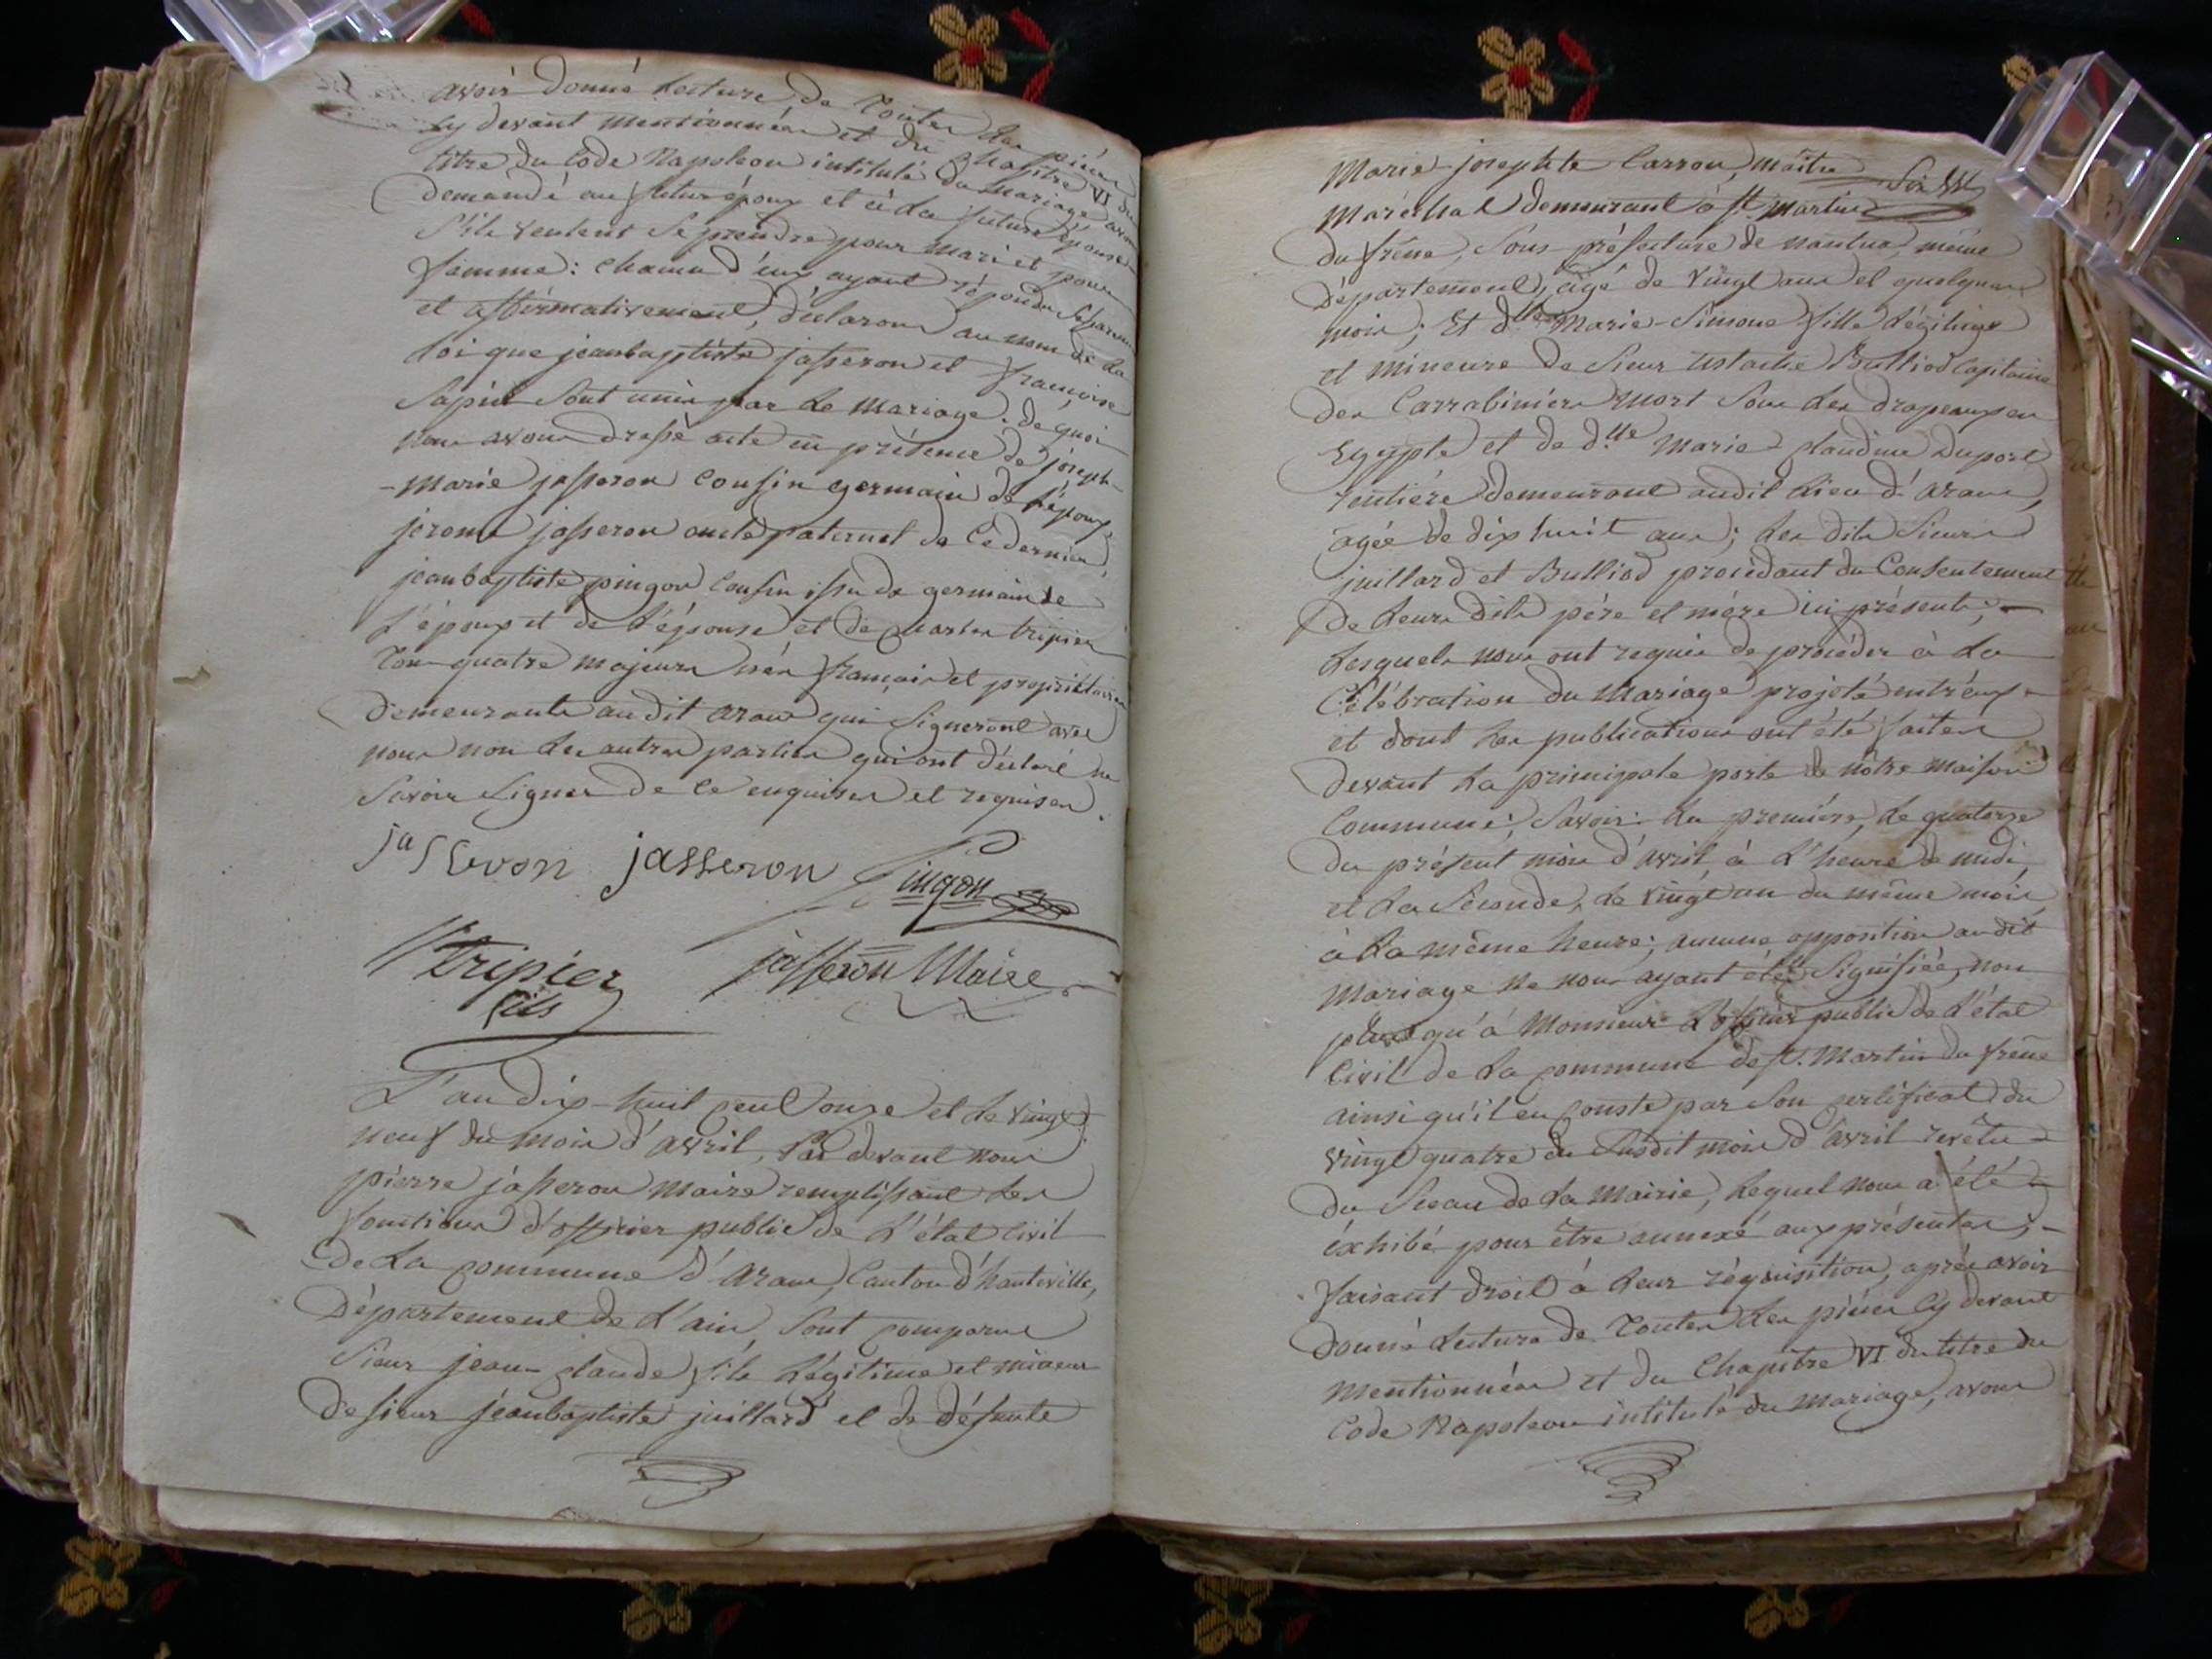 avoir donné lecture de toutes les pièces
cy devant mentionnées et du chapitre VI du
titre du Code Napoleon intitulé du mariage avons
demandé au futur époux et à la future épouse
s'ils veulent se prendre pour mari et pour
femme: chacun d'eux ayant répondu séparément
et affirmativement, déclarons au nom de la
loi que jeanbaptiste jasseron et françoise
Sapin sont unis par le mariage. de quoi
nous avons dressé acte en présence de joseph-
-marie jasseron cousin germain de l'époux,
jerome jasseron oncle paternel de ce dernier,
jeanbaptiste pingon cousin issu de germain de
l'époux et de l'épouse et de tripier
tous quatre majeurs nés français et propriétaires
demeurants audit aran qui signeront avec
nous non les autres parties qui ont déclaré ne
savoir signer de ce enquises et requises.
jasseron jasseron Pingon
tripier jasseron Maire
fils
L'an dix-huit cent onze et le vingt
neuf du mois d'avril, Par devant nous
pierre jasseron maire remplissant les
fonctions d'officier public de l'état civil
de la commune d'aran, Canton d'hauteville,
Département de l'ain, sont comparus
sieur jean-claude fils légitime et mineur
de sieur jeanbaptiste juillard et de défunte
Marie-josephte Carron, maître
Six
maréchal demeurant à st. martin
du frêne, sous préfecture de nantua, même
département, âgé de vingt ans et quelques
mois; Et dlle Marie-Simone fille légitime
et mineure de sieur Ustache Bulliod capitaine
des Carrabiniers mort sous les drapeaux en
Egypte et de d.lle Marie-claudine Duport
rentière demeurant audit lieu d'aran,
agée de dix huit ans; les dits sieurs
juillard et Bulliod procédant du consentement
de leurs dits père et mère ici présents;
Lesquels nous ont requis de procéder à la
célébration du mariage projeté entr'eux
et dont les publications ont été faites
devant la principale porte de nôtre maison
commune; savoir: la première, le quatorze
du présent mois d'avril, à l'heure de midi,
et la seconde, le vingt un du même mois,
à la même heure; aucune opposition au dit
mariage ne nous ayant été signifiée, non
plus qu'à Monsieur l'officier public de l'état
civil de la commune de st. Martin du frêne
ainsi qu'il en conste par son certificat du
vingt quatre du susdit mois d'avril revêtu
du sceau de la mairie, lequel nous a été
éxhibé pour être annexé aux présentes;
faisant droit à leur réquisition, après avoir
donné lecture de toutes les pièces cy devant
mentionnées et du Chapitre VI du titre du
Code Napoleon intitulé du mariage, avons